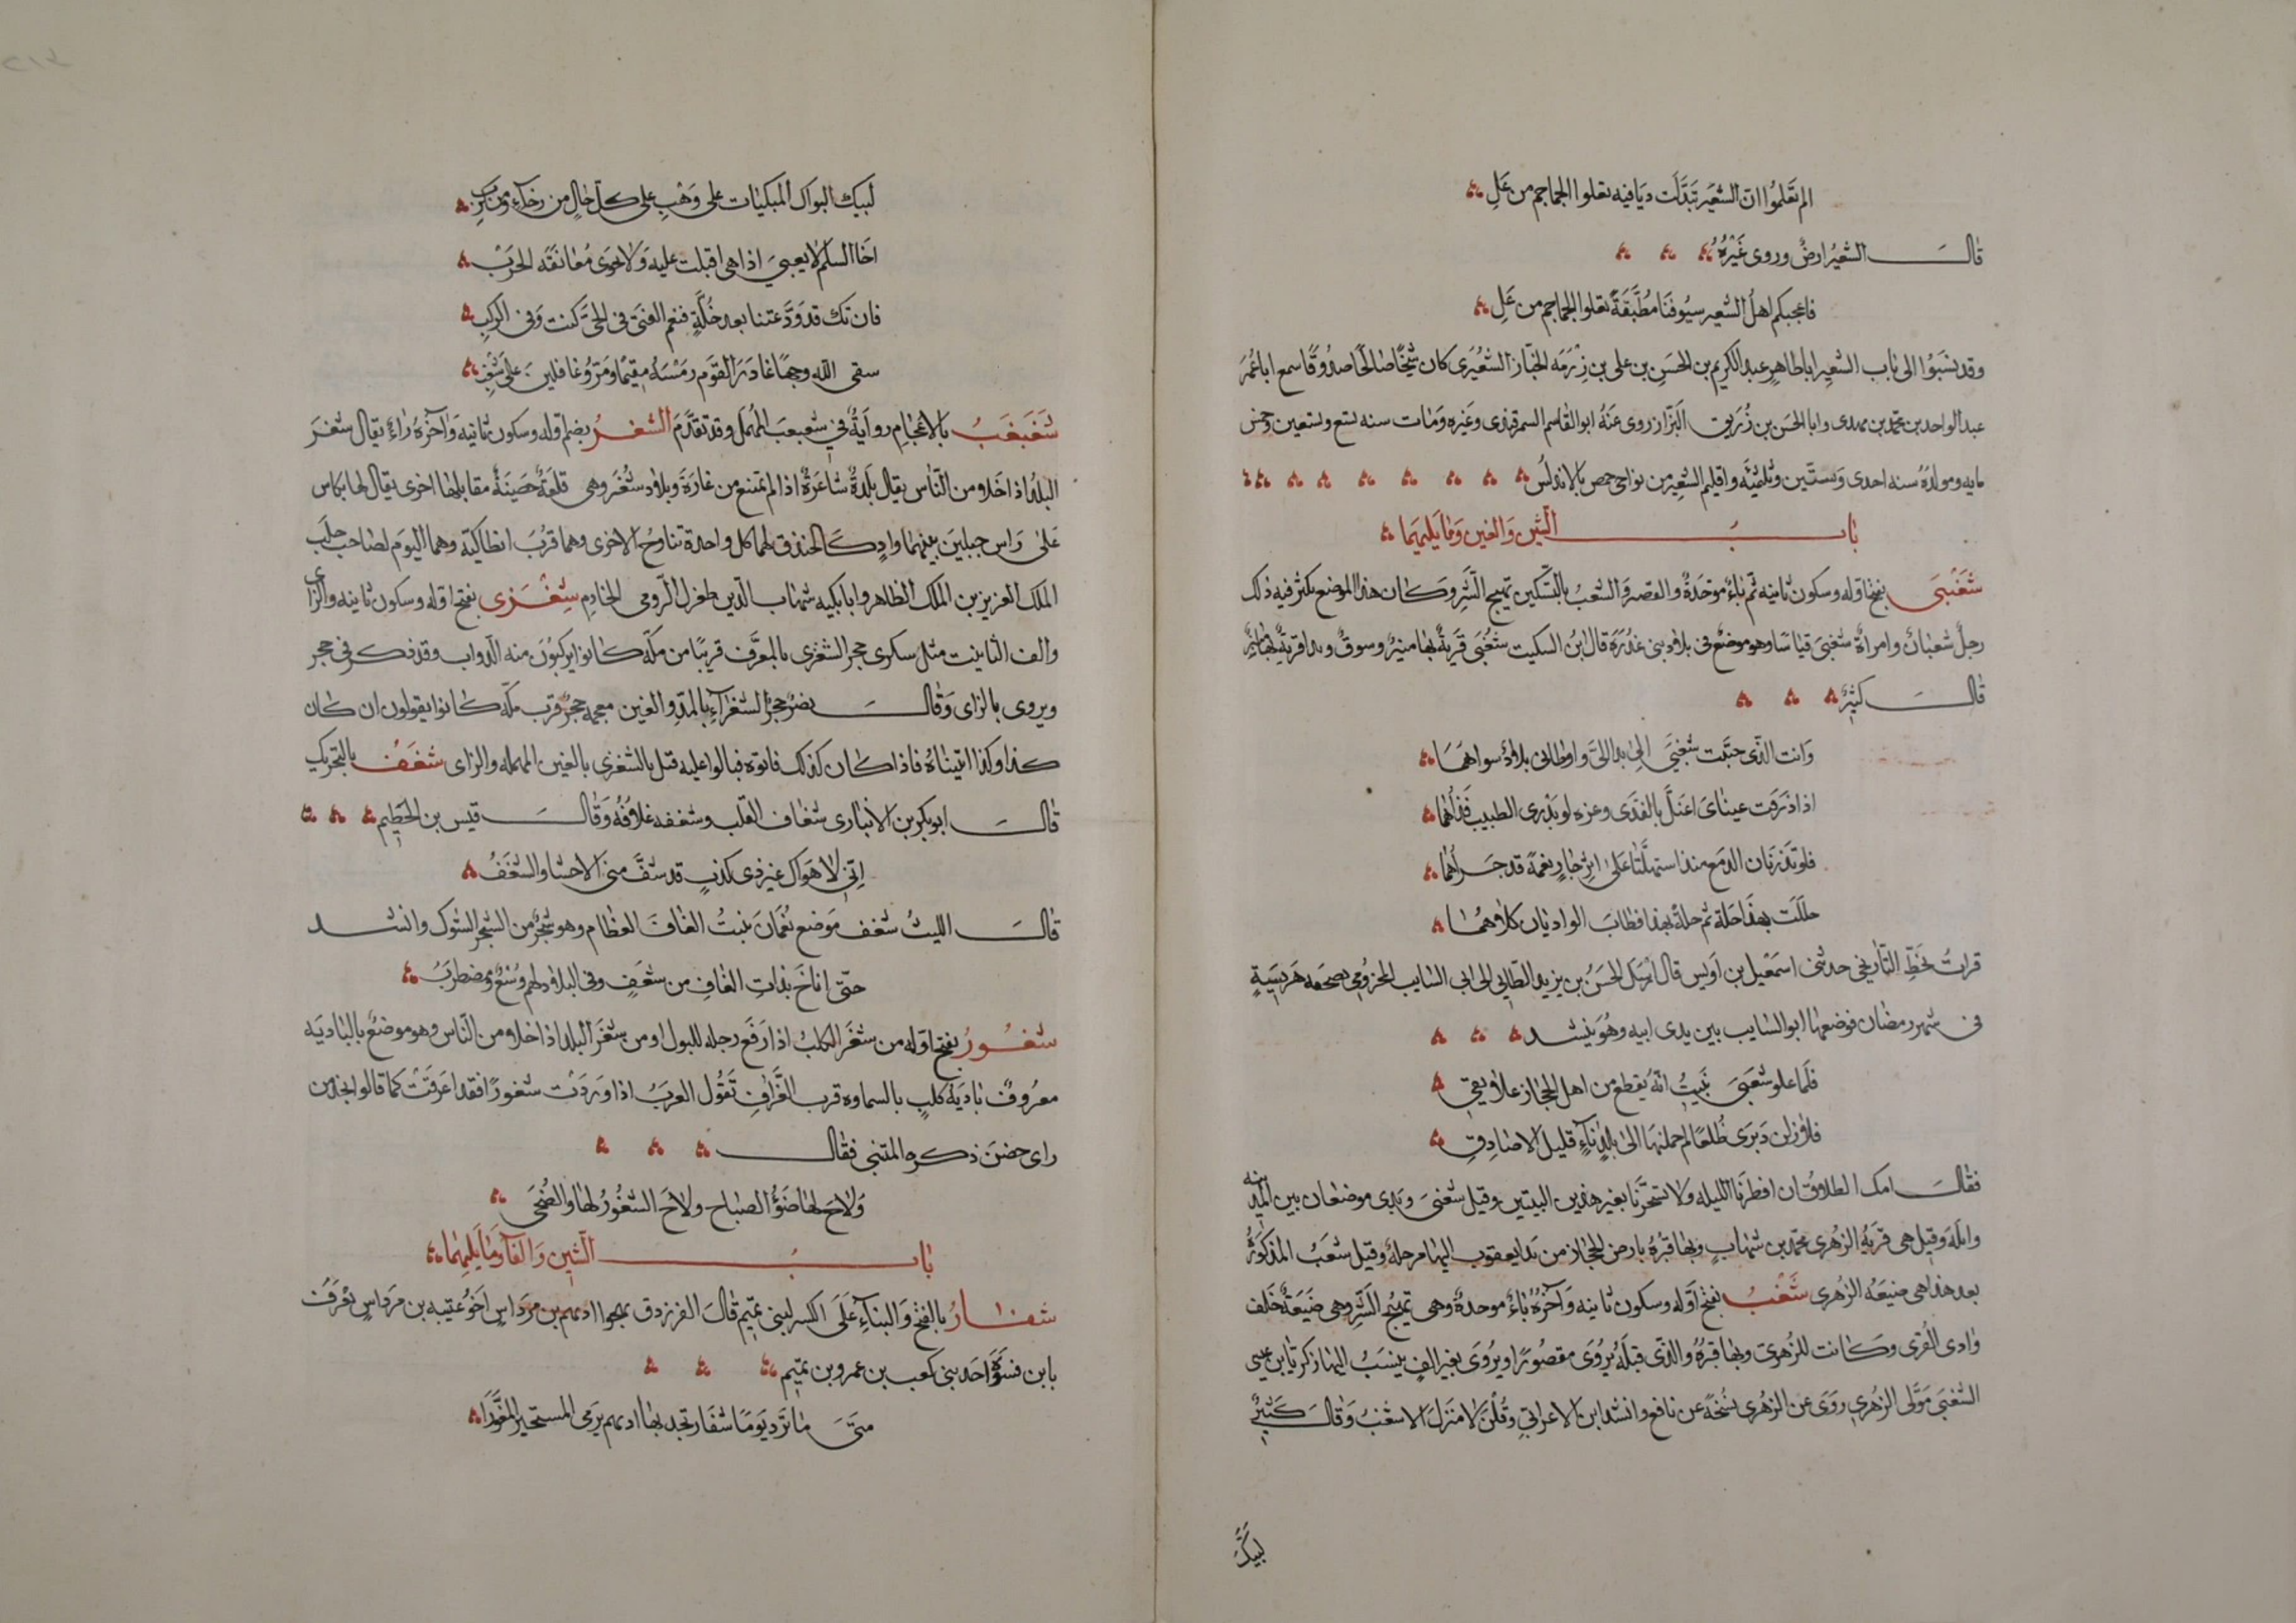 الم تعلموا ان الشعير تبدلت ديافيه تعلوا الجماجم من عل
قال الشعير ارض وروى غيره
فاعجبكم اهل الشعير سيوفنا مطبقة تعلوا الجماجم من عل
وقد نسبوا الى باب الشعير ابا طاهر عبد الكريم بن الحسن بن على بن رزمه الخباز الشعيرى كان شيخا صالحا صدوقا سمع ابا عمر
عبد الواحد بن محمد بن مهدى وابا الحسن بن زريق البزاز روى عنه ابو القاسم السمرقندى وغيره ومات سنه تسع وتسعين وخمس
مايه ومولده سنه احدى وستين وثلثمئه واقليم الشعير من نواحى حمص بالاندلس
باب الشين والغين وما يليهما
شغبى بفتح اوله وسكون ثانيه ثم باء موحدة والقصر والشعب بالتسكين تهيج الشر وكان هذا الموضع يكثر فيه ذلك
رجل شعبان وامراة شغبى قياسا وهو موضع فى بلاد بنى عذرة قال ابن السكيت شغبى قرية بها منبر وسوق وبدا قرية بها منبر
قال كثير
وانت الذى حببت شغبى الى بدا الى واوطانى بلاد سواهما
اذا ذرفت عيناى اعتل بالقذى وعزه لو يدرى الطبيب قذاهما
فلو تذريان الدمع منذ استهلتا على اثر جار نعمة قد جزاهما
حللت بهذا حلة ثم حلة بهذا فطاب الواديان كلاهما
قرات بخط التاريخى حدثنى اسمعيل بن اويس قال ارسل الحسن بن يزيد الطايى الى ابى السايب المخزومى بصحفه هريسة
فى شهر رمضان فوضعها ابو السايب بين يدى ابيه وهو ينشد
فلما علو شغبى تبينت انه يقطع من اهل الحجاز علايقى
فلا زلن دبرى ظلعا لم حملنها الى بلد ناء قليل الاصادق
فقال امك الطلاق ان افطرنا الليله ولا تسحرنا بغير هذين البيتين وقيل شغبى وبدى موضعان بين المدينه
وايله وقيل هى قرية الزهرى محمد بن شهاب وبها قبره بارض الحجاز من بدا يعقوب اليها مرحلة وقيل شغب المذكورة
بعد هذا هى ضيعه الزهرى شغب بفتح اوله وسكون ثانيه واخره باء موحدة وهى تهيج الشر وهى ضيعة خلف
وادى القرى وكانت للزهرى وبها قبره والذى قبله يروى مقصورا ويروى بغير الف ينسب اليها زكريا بن عيسى
الشغبى مولى الزهرى روى عن الزهرى نسخة عن نافع وانشد ابن الاعرابى وقلن لا منزل الا شغب وقال كثير
لبيك
لبيك البواك المبكيات على وهب على كل حال من رخاء ومن كرب
اخا السلم لا يعيى اذا هى اقبلت عليه ولا يجوى معانقه الحرب
فان تك قد ودعتنا بعد خلة فنعم الفتى فى الحى كنت وفى الركب
سقى الله وجها غادر القوم رمسه مقيما ومروا غافلين على شغب
شغبغب بالاعجام رواية فى شعبعب المهمل وقد تقدم الشغر بضم اوله وسكون ثانيه واخره راء يقال شغر
البلد اذا خلا من الناس يقال بلدة شاغرة اذا لم تمتنع من غارة وبلاد شغر وهى قلعة حصينة مقابلها اخرى يقال لها بكاس
على راس جبلين بينهما واد كالخندق لهما كل واحدة تناوح الاخرى وهما قرب انطاكيه وهما اليوم لصاحب حلب
الملك العزيز بن الملك الظاهر واتابكيه شهاب الدين طغرل الرومى الخادم شغزى بفتح اوله وسكون ثانيه والزاى
والف التانيث مثل سكرى حجر الشغزى بالمعرف قريبا من مكه كانوا يركبون منه الدواب وقد ذكر فى حجر
ويروى بالزاى وقال نصر حجر الشغراء بالمد والغين معجمه حجر قرب مكه كانوا يقولون ان كان
كذا وكذا اتيناه فاذا كان كذلك فاتوه فبالوا عليه قتل بالشغزى بالغين المهمله والزاى شغف بالتحريك
قال ابو بكر بن الانبارى شغاف القلب وشغفه غلافه وقال قيس بن الخطيم
انى لاهواك غير ذى كذب قد شف منى الاحشا والشغف
قال الليث شغف موضع نعمان ينبت الغاف العظام وهو شجر من الشجر الشوك وانشد
حتى اناخ بذات الغاف من شغف وفى البلاد لهم وسع ومضطرب
شغور بفتح اوله من شغر الكلب اذا رفع رجله للبول او من شغر البلد اذا خلا من الناس وهو موضع بالباديه
معروف بادية كلب بالسماوه قرب العراق تقول العرب اذا وردت شغورا فقد اعرقت كما قالوا انجد من
راى حضن ذكره المتنبى فقال
ولاح لها ضوء الصباح ولاح الشغور لها والضحى
باب الشين والفا وما يليهما
شفار بالفتح والبناء على الكسر لبنى تميم قال الفرزدق يهجوا اديهم بن مرداس اخو عتيبه بن مرداس يعرف
بابن فسوة احد بنى كعب بن عمرو بن تميم
متى ما ترد يوما شفار تجد بها اديهم يرمى المستحيز المغورا